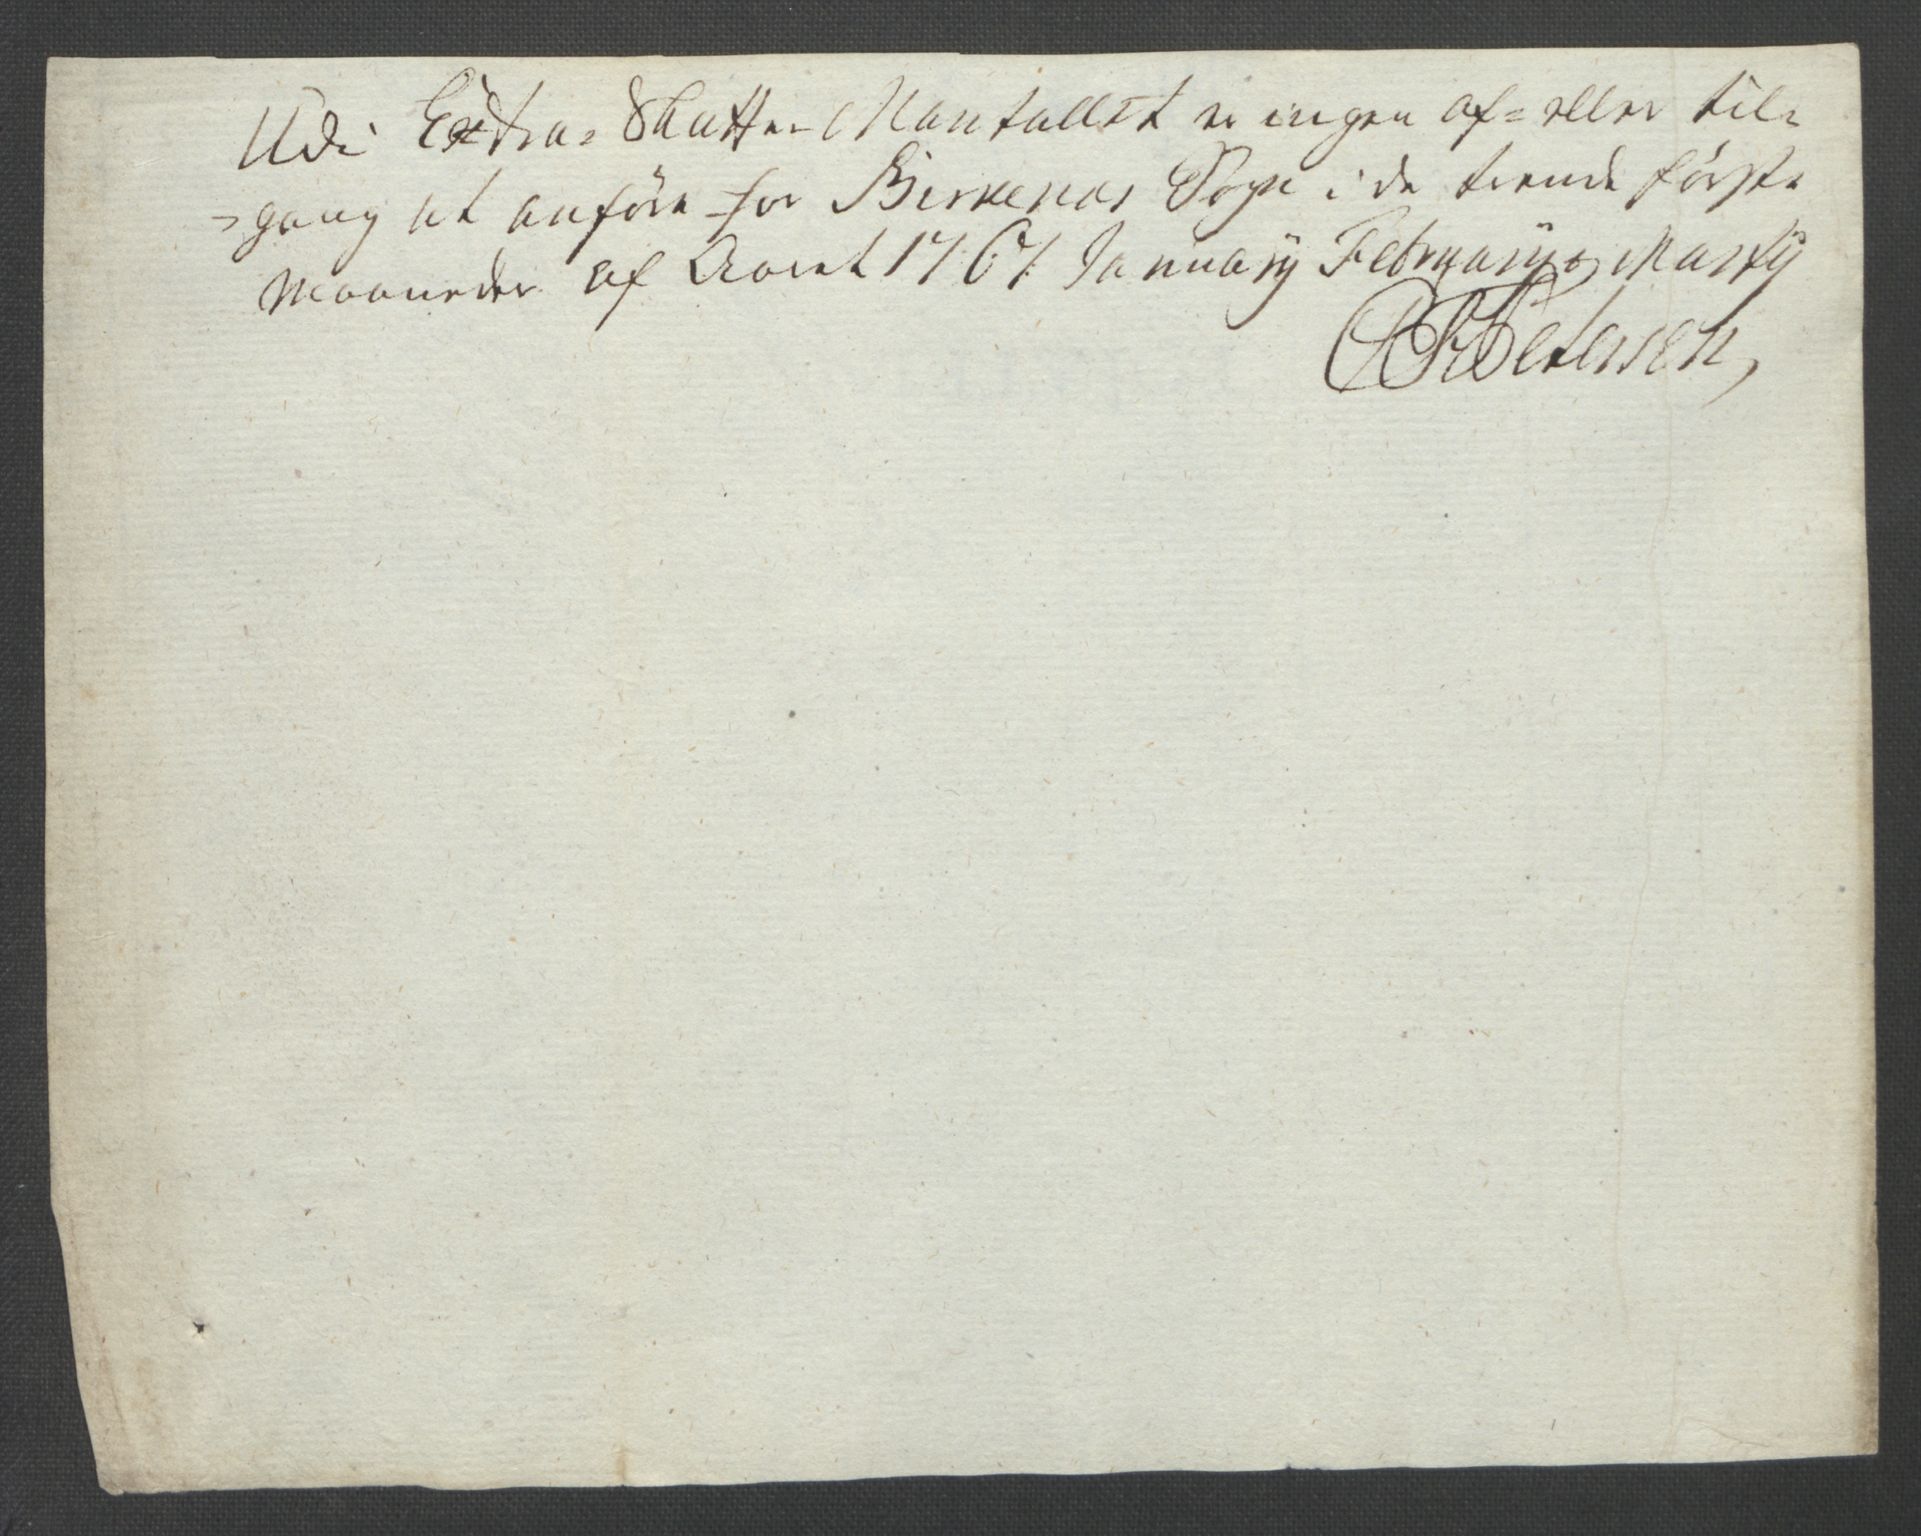 Udi Extra- Skatte-Mantallet er ingen af- eller til-
-gang at anföre for Birkenes Sogn i de trende förste
Maaneder af Aaret 1767 January February og Marty
Petersen